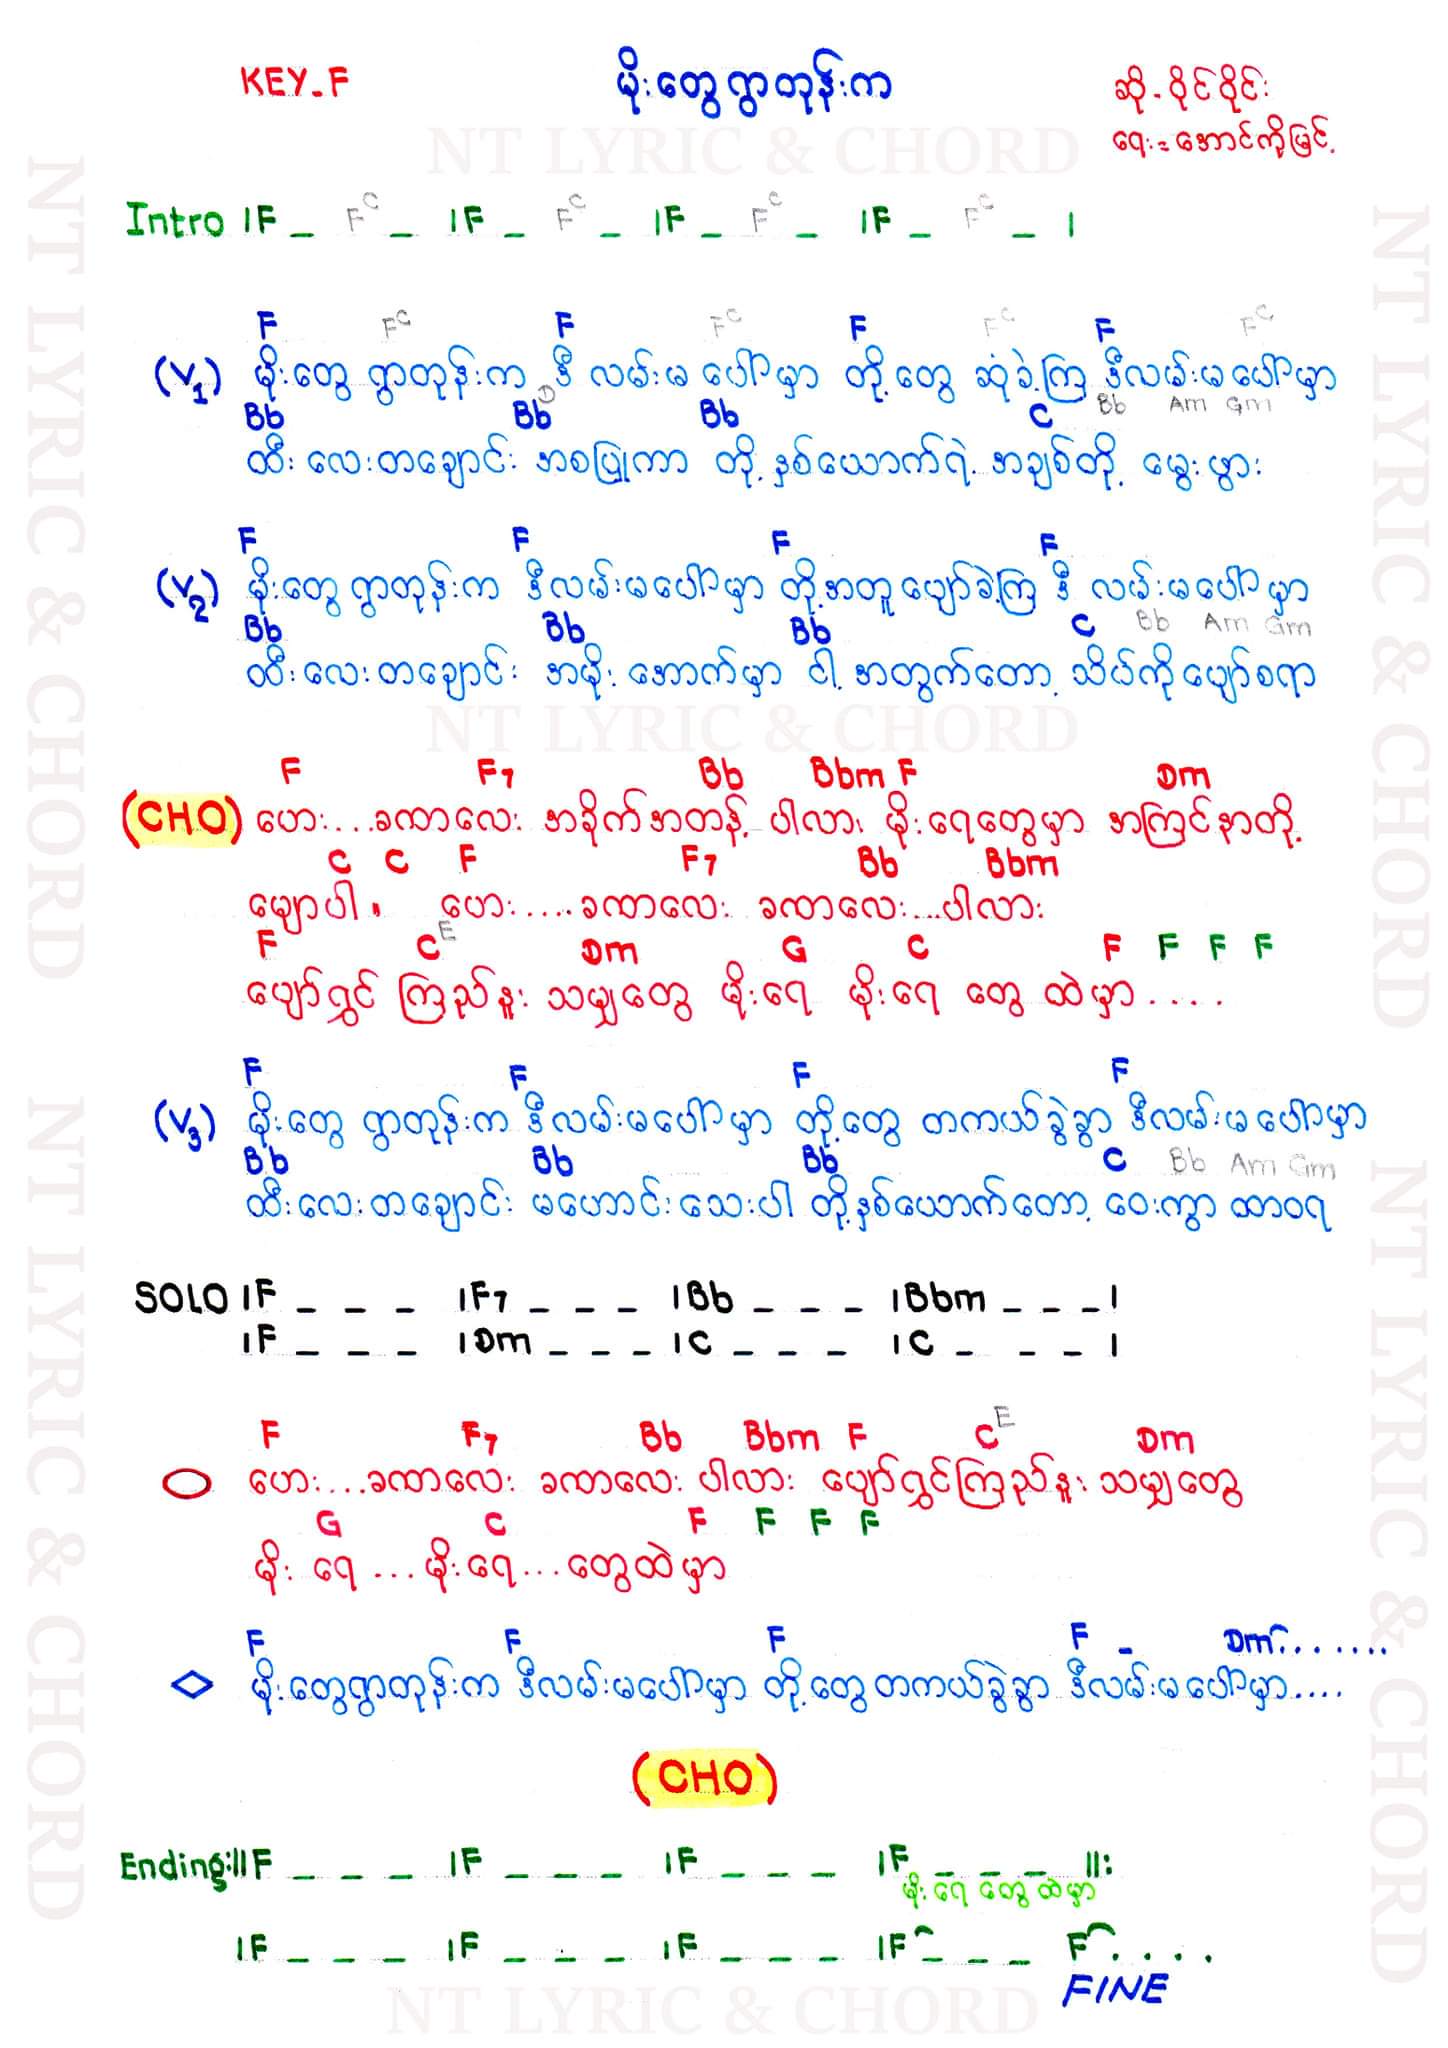 KEY-F
မိုးတွေရွာတုန်းက
ဆို - ဝိုင်ဝိုင်း
ရေး = အောင်ကိုမြင့်
NT LYRIC & CHORD
Intro |F _ F^C _ |F _ F^C _ |F _ F^C _ |F _ F^C _ |
F F^C F F^C F F^C F F^C
(V1) မိုးတွေ ရွာတုန်းက ဒီ လမ်းမ ပေါ်မှာ တို့တွေ ဆုံခဲ့ကြ ဒီလမ်းမပေါ်မှာ
Bb Bb^D Bb C Bb Am Gm
ထီးလေးတချောင်း အစပြုကာ တို့ နှစ်ယောက်ရဲ့ အချစ်တို့ မွေးဖွား
F F F F
(V2) မိုးတွေ ရွာတုန်းက ဒီလမ်းမပေါ်မှာ တို့အတူပျော်ခဲ့ကြ ဒီ လမ်းမပေါ်မှာ
Bb Bb Bb C Bb Am Gm
ထီးလေးတချောင်း အမိုးအောက်မှာ ငါ့ အတွက်တော့ သိပ်ကိုပျော်စရာ
NT LYRIC & CHORD
F F7 Bb Bbm F Dm
(CHO) ဟေး...ခဏလေး အခိုက်အတန့် ပါလား မိုးရေတွေမှာ အကြင်နာတို့
C C F F7 Bb Bbm
မျောပါ။ ဟေး....ခဏလေး ခဏလေး...ပါလား
F C^E Dm G C F F F F
ပျော်ရွှင် ကြည်နူး သမျှတွေ မိုးရေ မိုးရေ တွေ ထဲမှာ....
F F F F
(V3) မိုးတွေ ရွာတုန်းက ဒီလမ်းမပေါ်မှာ တို့တွေ တကယ်ခွဲခွာ ဒီလမ်းမပေါ်မှာ
Bb Bb Bb C Bb Am Gm
ထီးလေးတချောင်း မဟောင်းသေးပါ တို့နှစ်ယောက်တော့ ဝေးကွာ ထာဝရ
SOLO |F _ _ _ |F7 _ _ _ |Bb _ _ _ |Bbm _ _ _|
|F _ _ _ |Dm _ _ _ |C _ _ _ |C _ _ _|
F F7 Bb Bbm F C^E Dm
ဟေး...ခဏလေး ခဏလေး ပါလား ပျော်ရွှင်ကြည်နူး သမျှတွေ
G C F F F F
မိုး ရေ...မိုးရေ...တွေထဲမှာ
F F F F - Dm.......
မိုးတွေရွာတုန်းက ဒီလမ်းမပေါ်မှာ တို့တွေတကယ်ခွဲခွာ ဒီလမ်းမပေါ်မှာ....
(CHO)
Ending:||F _ _ _ |F _ _ _ |F _ _ _ |F _ _ _ ||:
မိုးရေ တွေထဲမှာ
|F _ _ _ |F _ _ _ |F _ _ _ |F _ _ _ F....
FINE
NT LYRIC & CHORD
NT LYRIC & CHORD
NT LYRIC & CHORD
NT LYRIC & CHORD
NT LYRIC & CHORD